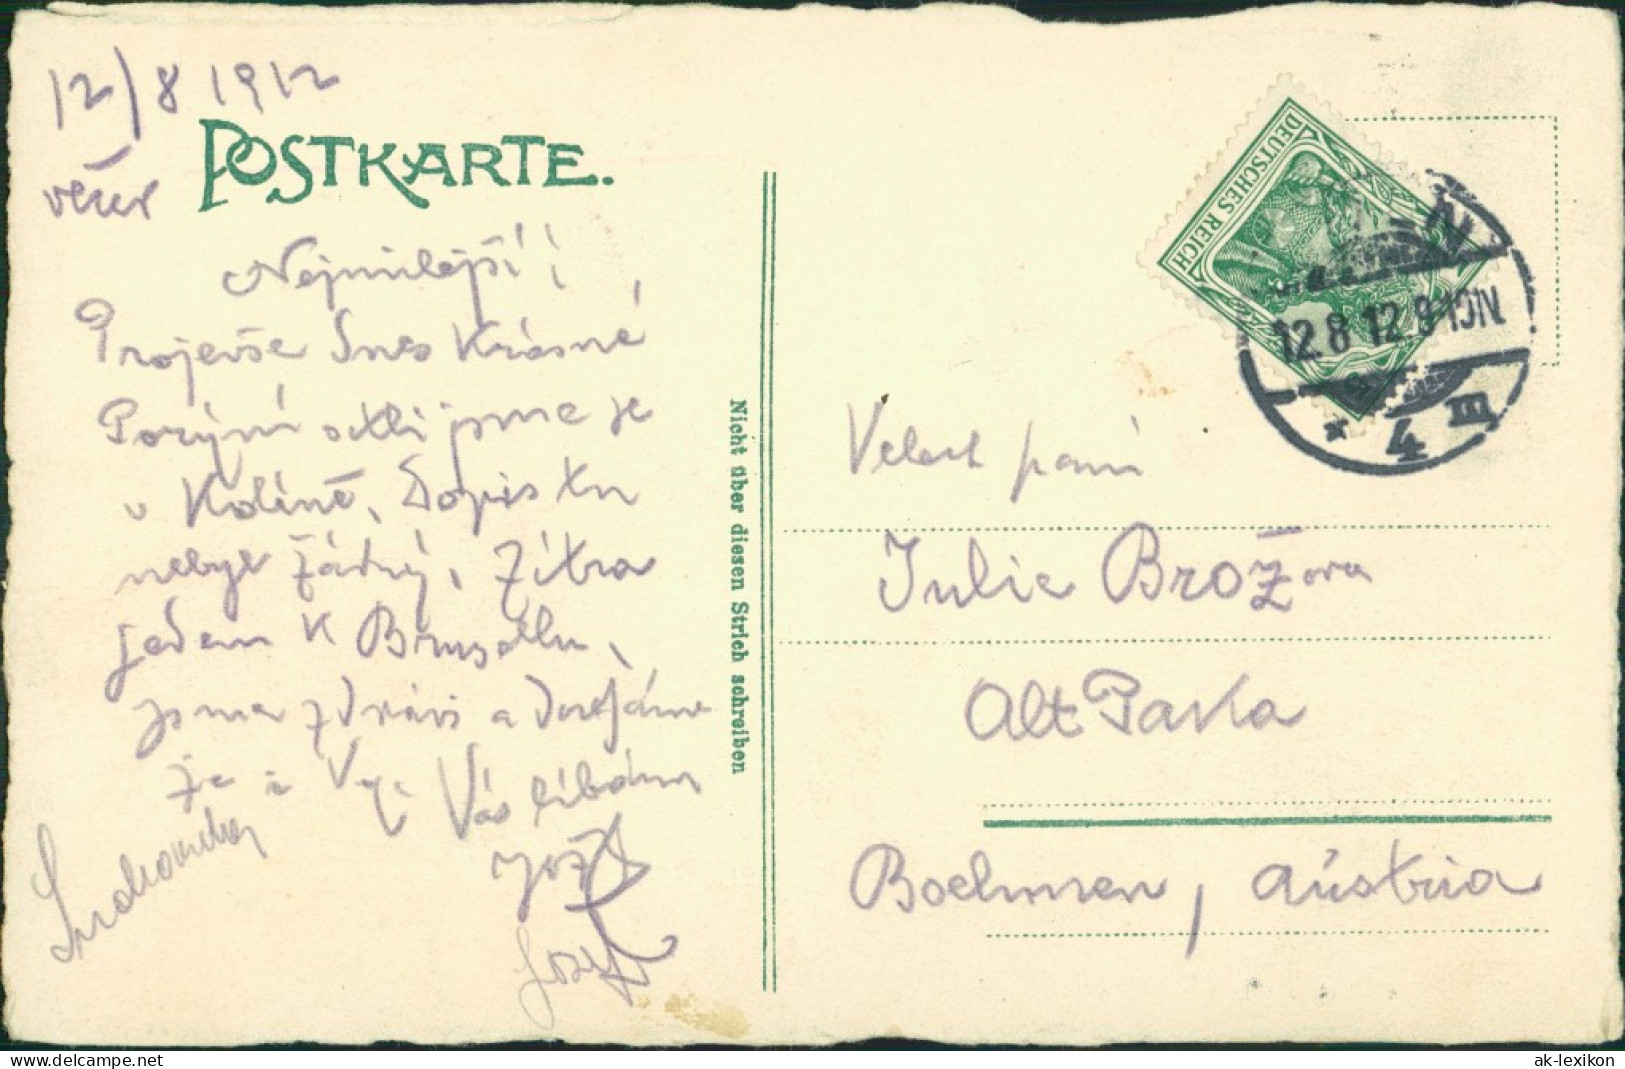 12/8 1912
večer
POSTKARTE.
Nejmilejší!
Projevše dnes krásné
Porýní octli jsme se
v Kolíně, Dopis tu
nebyl žádný, Zítra
jedem k Bruselu,
jsme zdrávi a doufáme
že i Vy. Vás líbám
Jož
Josef
Nicht über diesen Strich schreiben
DEUTSCHES REICH
12.8.12.9-10N
* 4 III
Velect paní
Julie Brožova
Alt Paka
Boehmen, Austria
ak-lexikon
https://www.delcampe.net